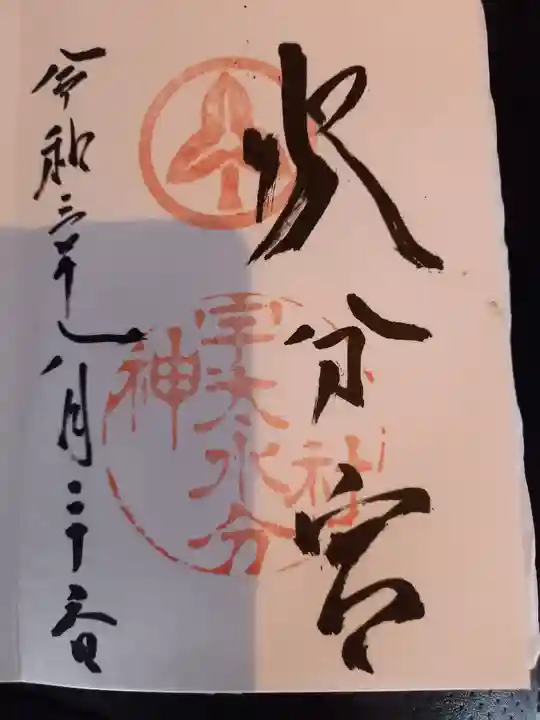 水分宮
宇太水分
神社
令和三年八月二十二日